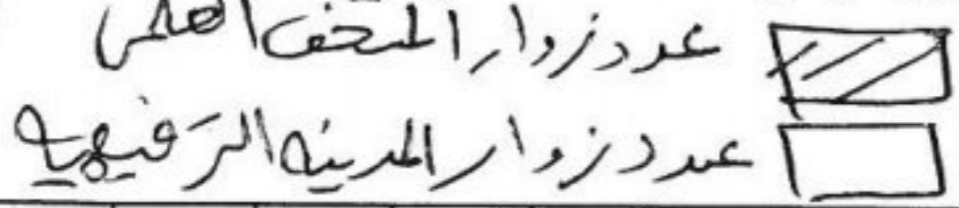 عدد زوار المتحف العلمي
عدد زوار المدينه الترفيهيه